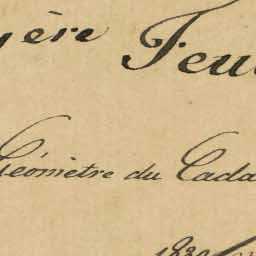 ère Feu
Géomètre du Cada
1830